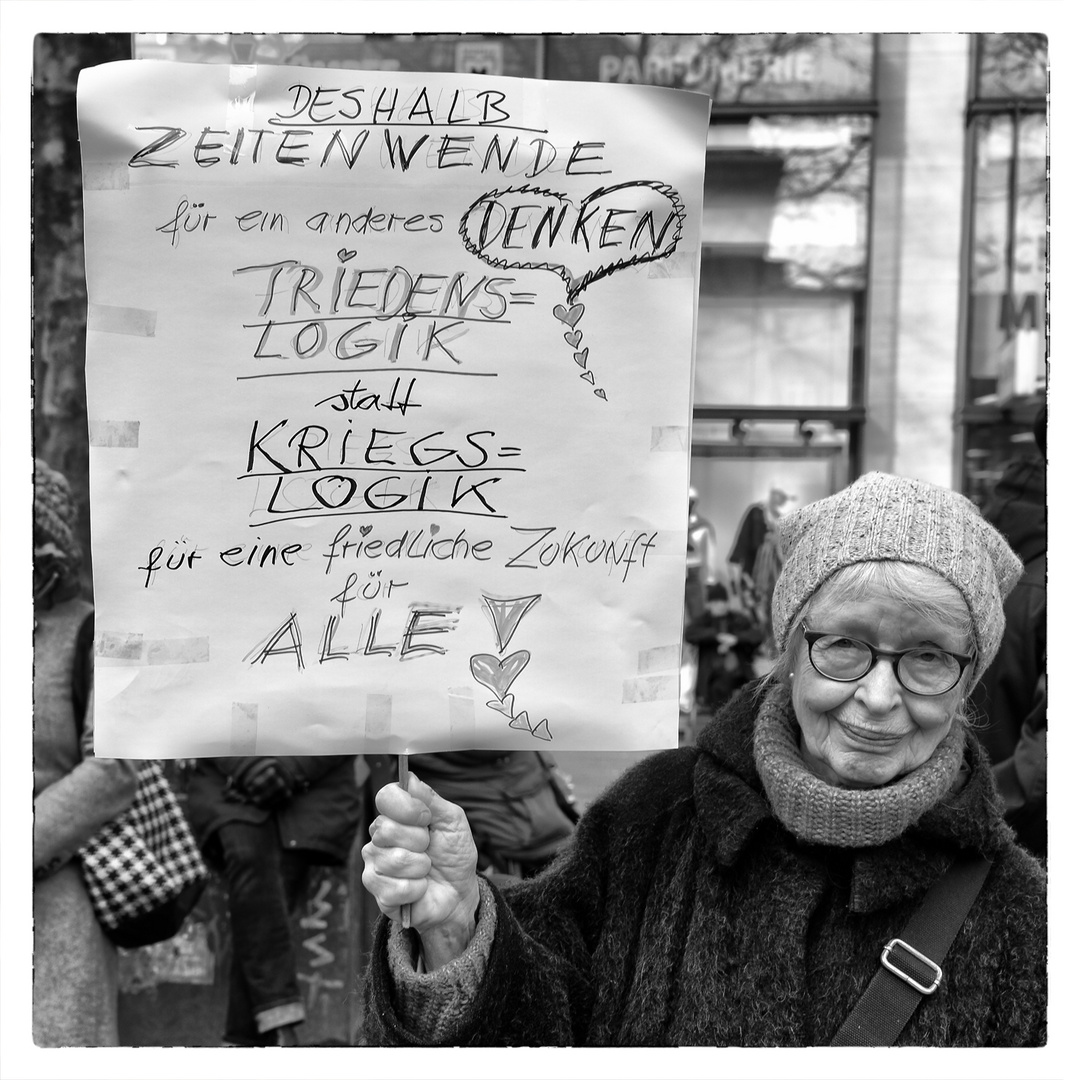 PARFÜMERIE
M
DESHALB
ZEITENWENDE
für ein anderes DENKEN
FRIEDENS=
LOGIK
statt
KRIEGS=
LOGIK
für eine friedliche ZUKUNft
für
ALLE